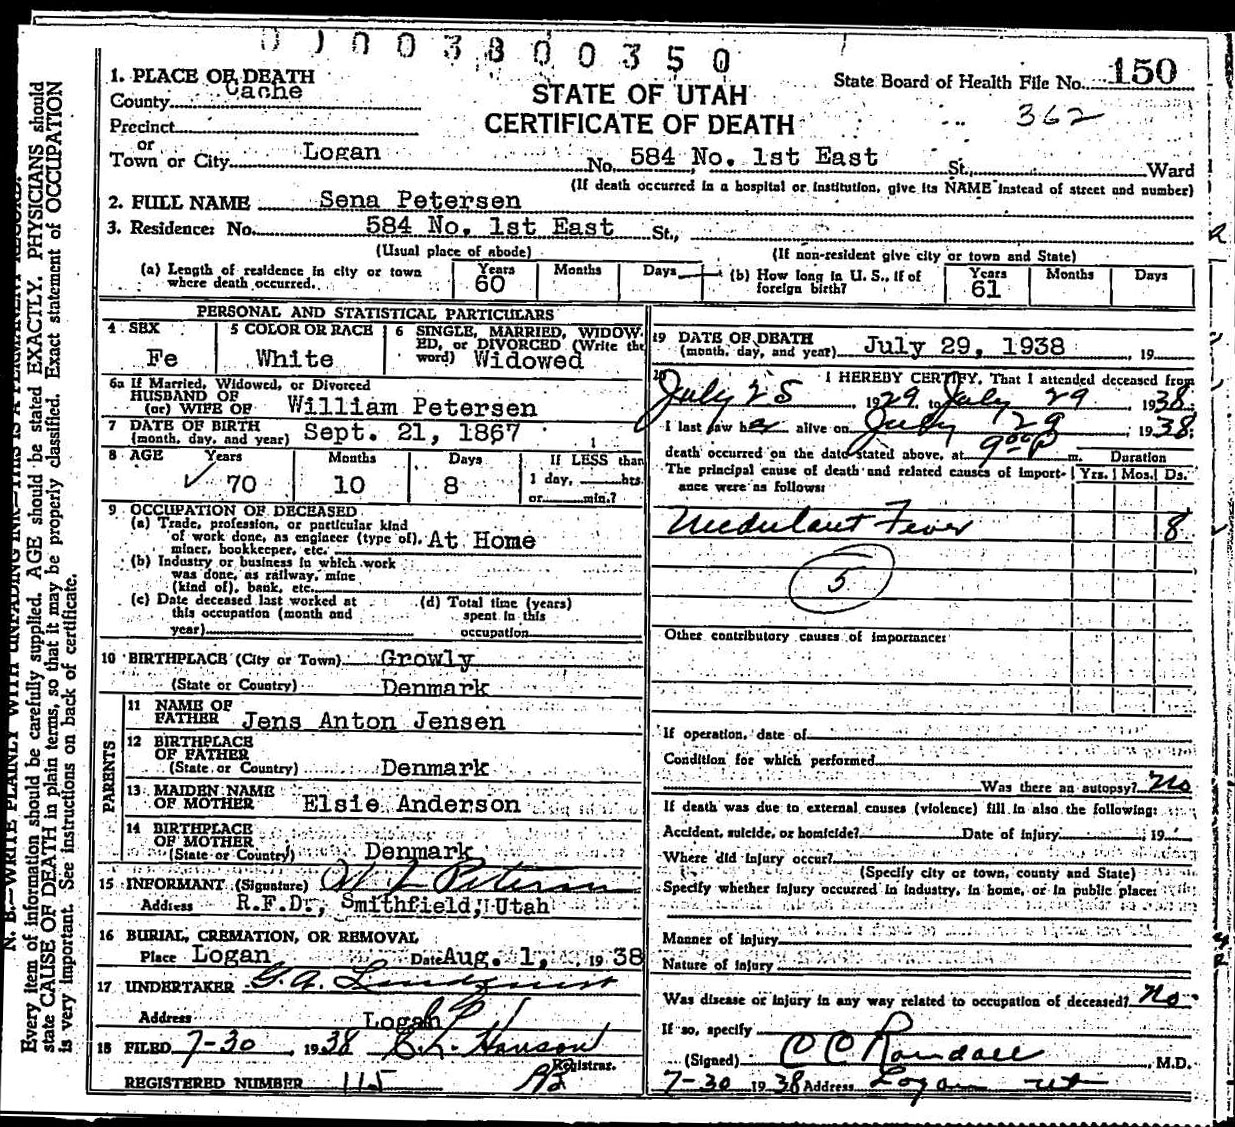 0 1 0 0 3 8 0 0 3 5 0
State Board of Health File No. 150
362
STATE OF UTAH
CERTIFICATE OF DEATH
1. PLACE OF DEATH
County Cache
Precinct
or
Town or City Logan No. 584 No. 1st East St., Ward
(If death occurred in a hospital or institution, give its NAME instead of street and number)
2. FULL NAME Sena Petersen
3. Residence: No. 584 No. 1st East St.,
(Usual place of abode) (If non-resident give city or town and State)
(a) Length of residence in city or town where death occurred. Years 60 Months Days
(b) How long in U. S., if of foreign birth? Years 61 Months Days
PERSONAL AND STATISTICAL PARTICULARS
4 SEX Fe
5 COLOR OR RACE White
6 SINGLE, MARRIED, WIDOWED, or DIVORCED (Write the word) Widowed
6a If Married, Widowed, or Divorced
HUSBAND OF
(or) WIFE OF William Petersen
7 DATE OF BIRTH
(month, day, and year) Sept. 21, 1867
8 AGE Years 70 Months 10 Days 8 If LESS than 1 day, hrs. or min.?
9 OCCUPATION OF DECEASED
(a) Trade, profession, or particular kind
of work done, as engineer (type of), At Home
miner, bookkeeper, etc.
(b) Industry or business in which work
was done, as railway, mine
(kind of), bank, etc.
(c) Date deceased last worked at
this occupation (month and
year)
(d) Total time (years)
spent in this
occupation
10 BIRTHPLACE (City or Town) Growly
(State or Country) Denmark
PARENTS
11 NAME OF
FATHER Jens Anton Jensen
12 BIRTHPLACE
OF FATHER
(State or Country) Denmark
13 MAIDEN NAME
OF MOTHER Elsie Anderson
14 BIRTHPLACE
OF MOTHER
(State or Country) Denmark
15 INFORMANT (Signature) W L Petersen
Address R.F.D., Smithfield, Utah
16 BURIAL, CREMATION, OR REMOVAL
Place Logan Date Aug. 1, 1938
17 UNDERTAKER G. A. Lindquist
Address Logan
18 FILED 7-30, 1938
Registrar.
REGISTERED NUMBER 115
19 DATE OF DEATH
(month, day, and year) July 29, 1938, 19
20 I HEREBY CERTIFY, That I attended deceased from
July 25, 1929, to July 29 1938.
I last saw her alive on July 29 1938.
death occurred on the date stated above, at 9 00 P m. Duration
The principal cause of death and related causes of importance were as follows: Yrs. Mos. Ds.
Undulant Fever 8
5
Other contributory causes of importance:
If operation, date of
Condition for which performed
Was there an autopsy? No
If death was due to external causes (violence) fill in also the following:
Accident, suicide, or homicide? Date of injury, 19
Where did injury occur?
(Specify city or town, county and State)
Specify whether injury occurred in industry, in home, or in public place:
Manner of injury
Nature of injury
Was disease or injury in any way related to occupation of deceased? No
If so, specify
(Signed) O C Randall, M.D.
7-30 1938 Address Logan Ut
N. B.—WRITE PLAINLY WITH UNFADING INK—THIS IS A PERMANENT RECORD.
Every item of information should be carefully supplied. AGE should be stated EXACTLY. PHYSICIANS should
state CAUSE OF DEATH in plain terms, so that it may be properly classified. Exact statement of OCCUPATION
is very important. See instructions on back of certificate.